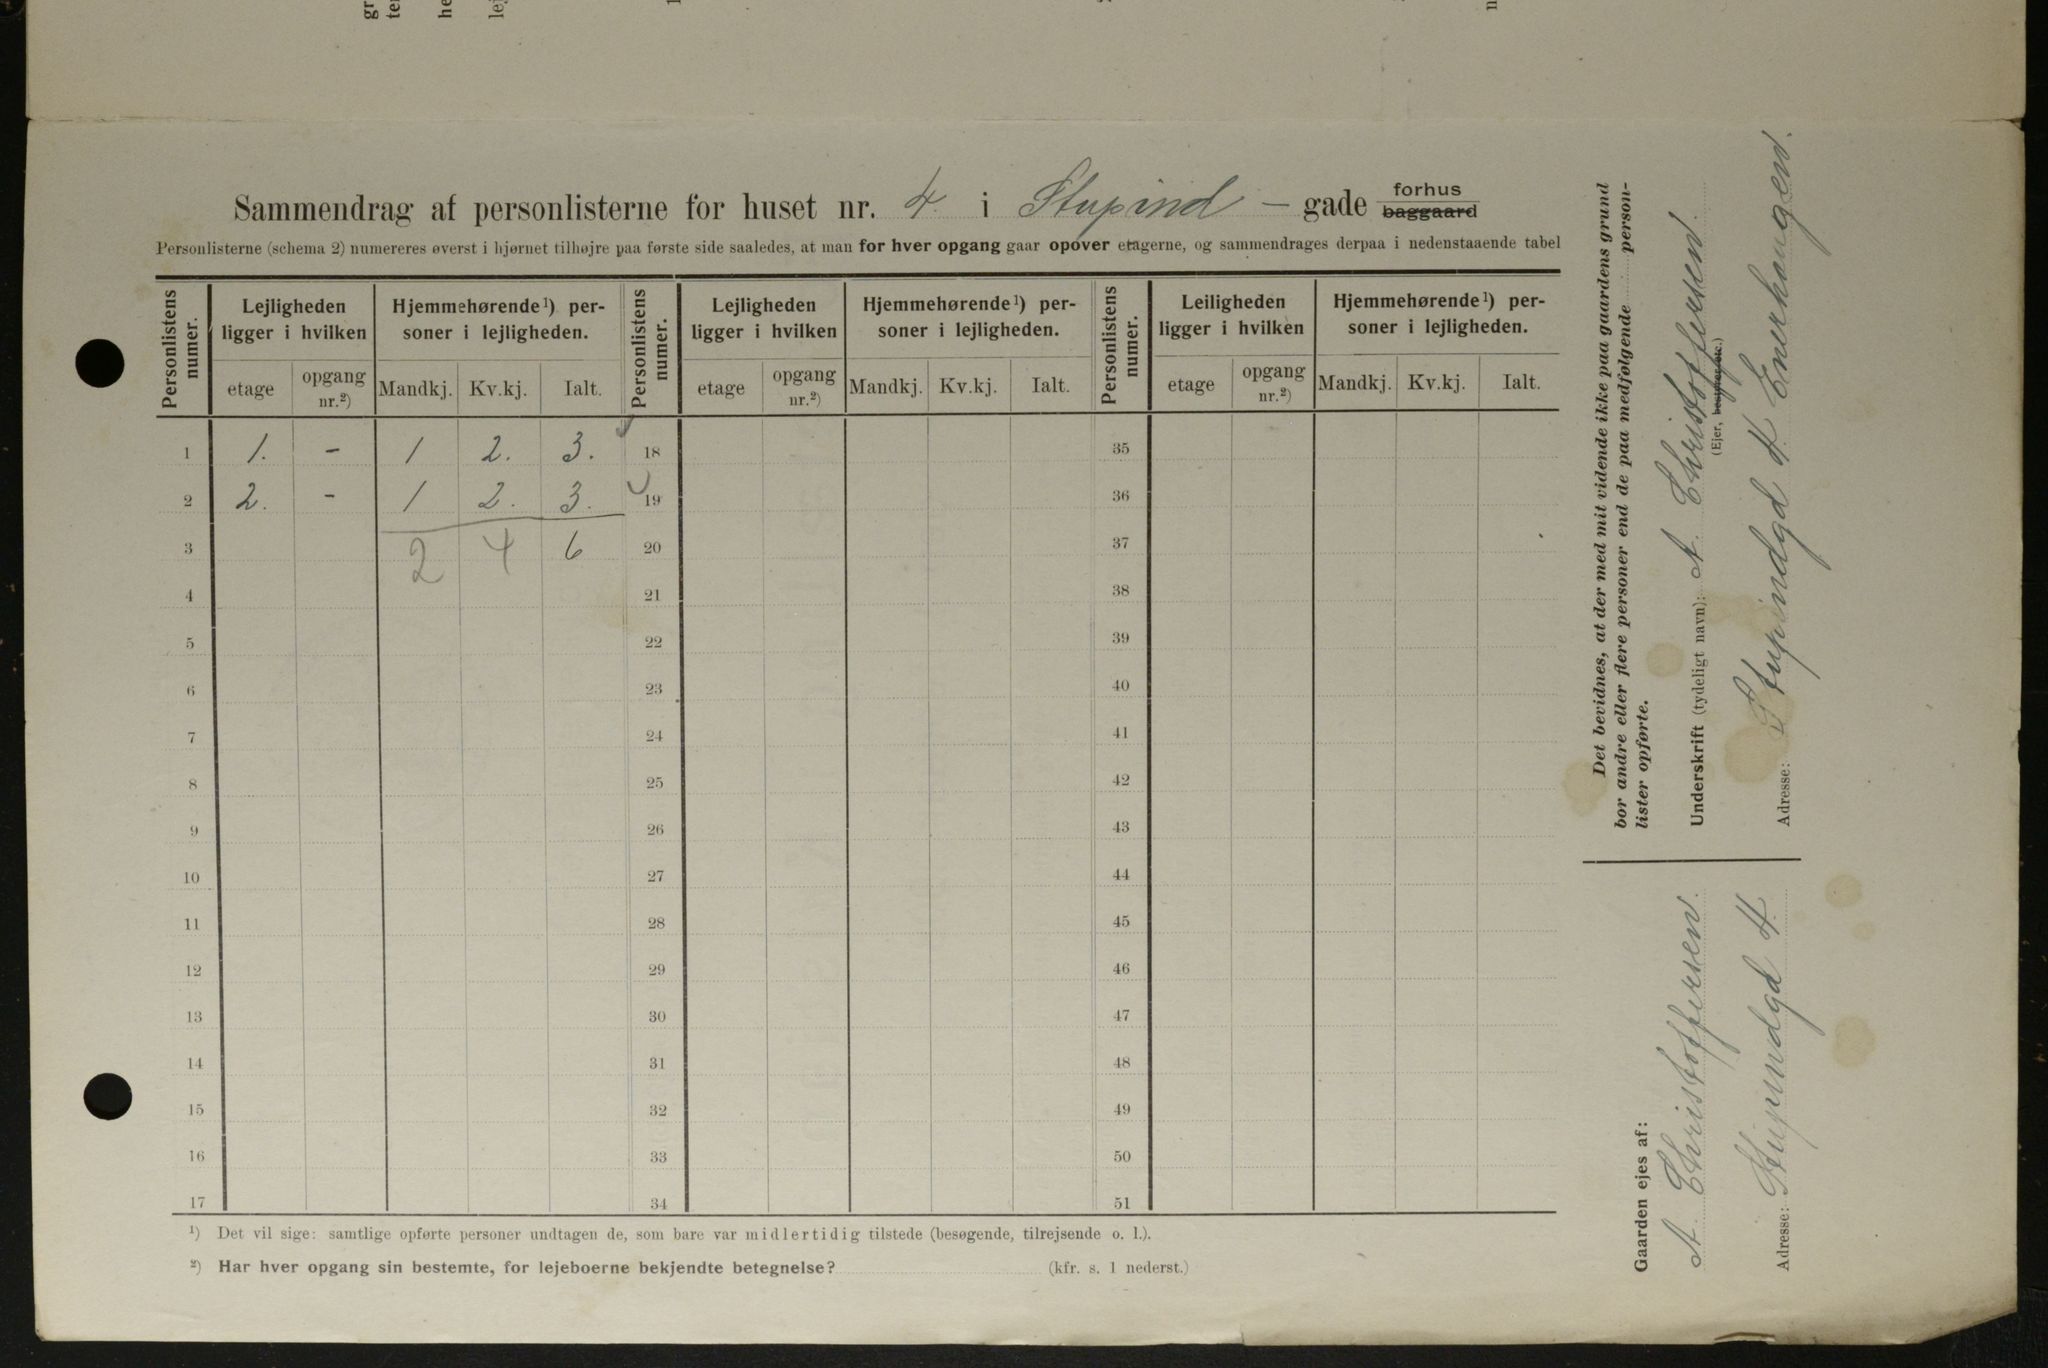 Sammendrag af personlisterne for huset nr. 4. i Stupind - gade forhus baggaard
Personlisterne (schema 2) numereres øverst i hjørnet tilhøjre paa første side saaledes, at man for hver opgang gaar opover etagerne, og sammendrages derpaa i nedenstaaende tabel
Personlistens numer. Lejligheden ligger i hvilken Hjemmehørende¹) personer i lejligheden. Personlistens numer. Lejligheden ligger i hvilken Hjemmehørende¹) personer i lejligheden. Personlistens numer. Leiligheden ligger i hvilken Hjemmehørende¹) personer i lejligheden.
etage opgang nr.²) Mandkj. Kv.kj. Ialt. etage opgang nr.²) Mandkj. Kv.kj. Ialt. etage opgang nr.²) Mandkj. Kv.kj. Ialt.
1 1. - 1 2. 3. 18 35
2 2. - 1 2. 3. 19 36
3 2 4 6 20 37
4 21 38
5 22 39
6 23 40
7 24 41
8 25 42
9 26 43
10 27 44
11 28 45
12 29 46
13 30 47
14 31 48
15 32 49
16 33 50
17 34 51
¹) Det vil sige: samtlige opførte personer undtagen de, som bare var midlertidig tilstede (besøgende, tilrejsende o. l.).
²) Har hver opgang sin bestemte, for lejeboerne bekjendte betegnelse? (kfr. s. 1 nederst.)
Det bevidnes, at der med mit vidende ikke paa gaardens grund
bor andre eller flere personer end de paa medfølgende person-
lister opførte.
Underskrift (tydeligt navn): A. Christoffersen.
(Ejer, bestyrer etc.)
Adresse: Stupindgd 4. Enerhaugen.
Gaarden ejes af:
A. Christoffersen.
Adresse: Stupindgd 4.